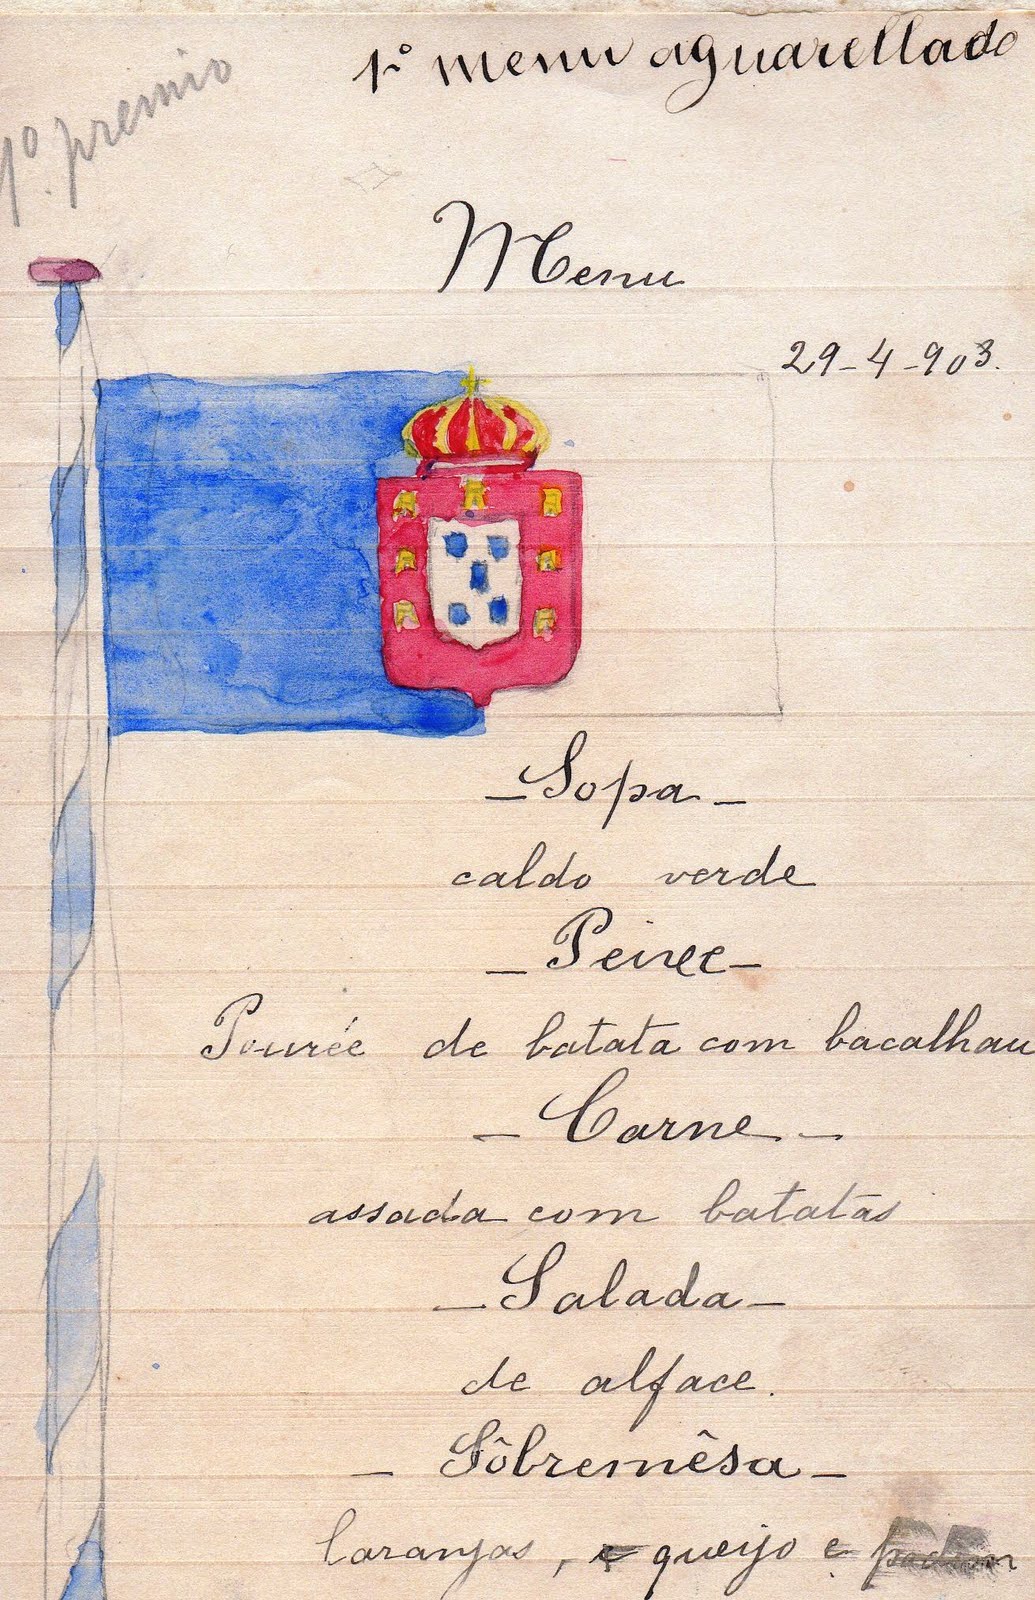 1º menu aguarellado
1º premio
Menu
29-4-903.
- Sopa -
caldo verde
- Peixe -
Pourée de batata com bacalhau
- Carne -
assada com batatas
- Salada -
de alface.
- Sôbremêsa -
laranjas, e queijo e